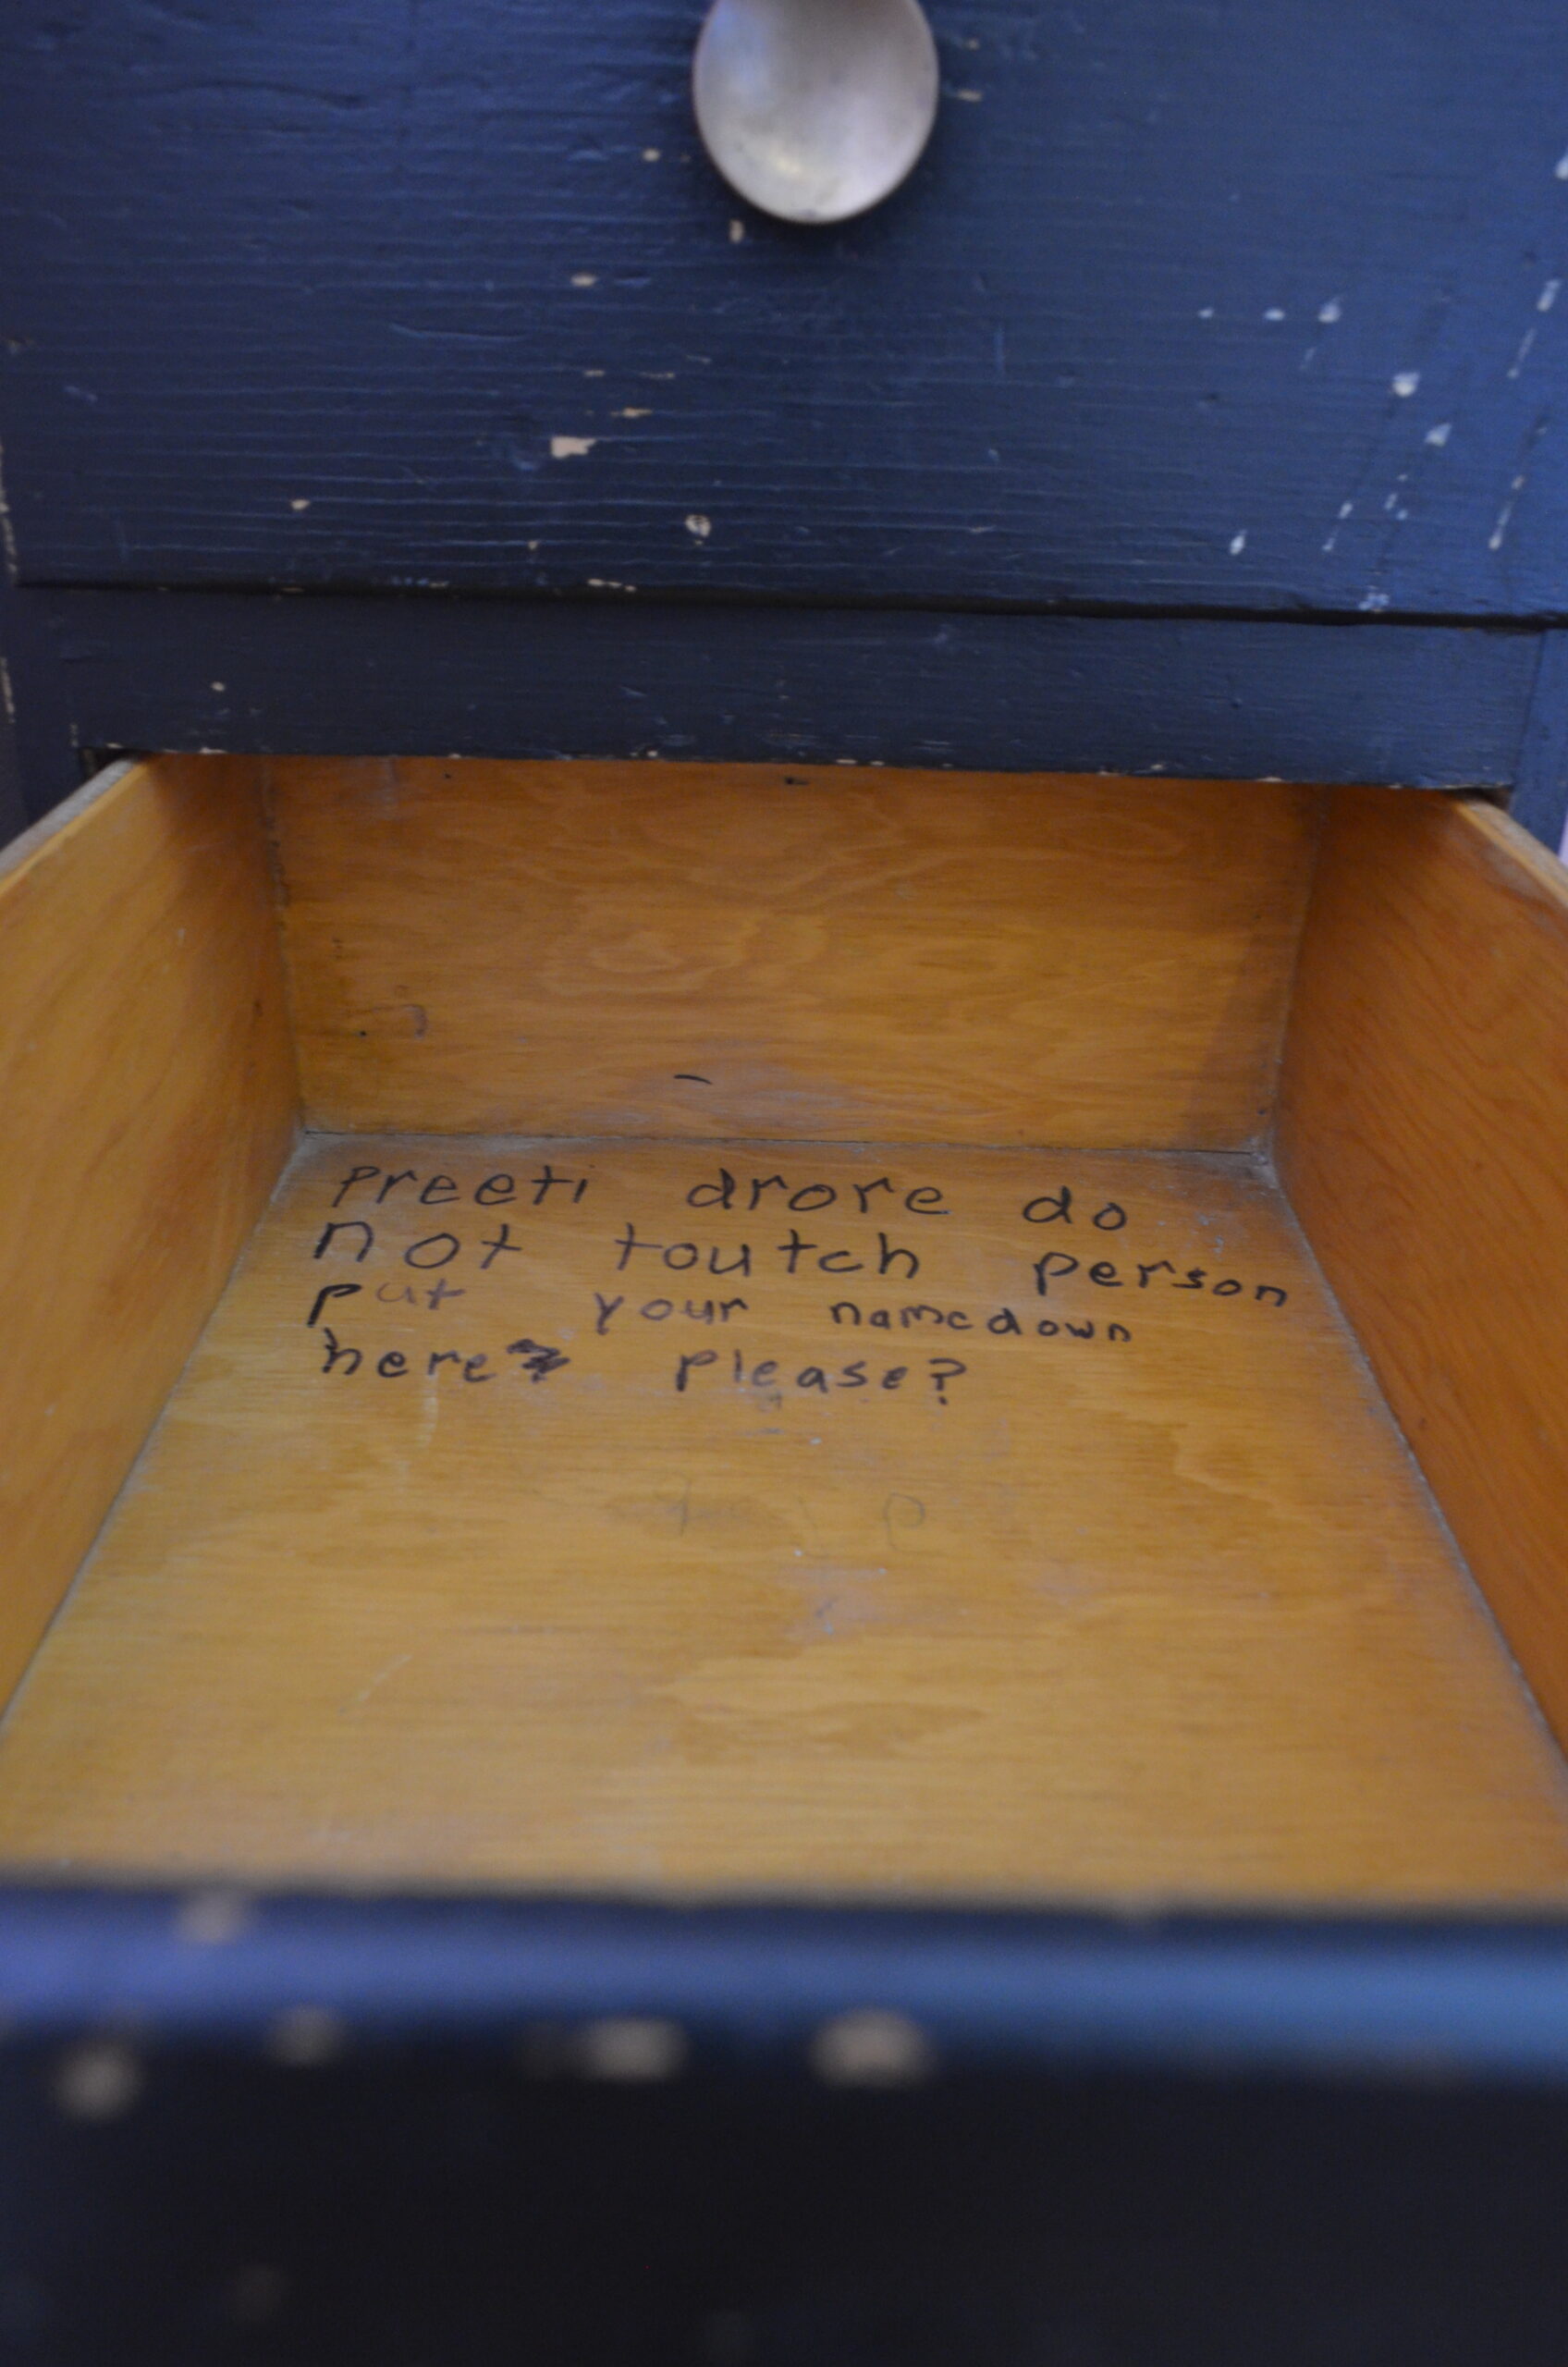 preeti drore do
not toutch person
put your name down
here please?